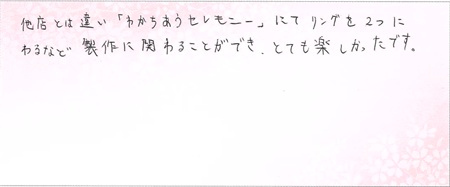 他店とは違い「わかちあうセレモニー」にて リングを2つに
わるなど 製作に関わることができ、とても楽しかったです。